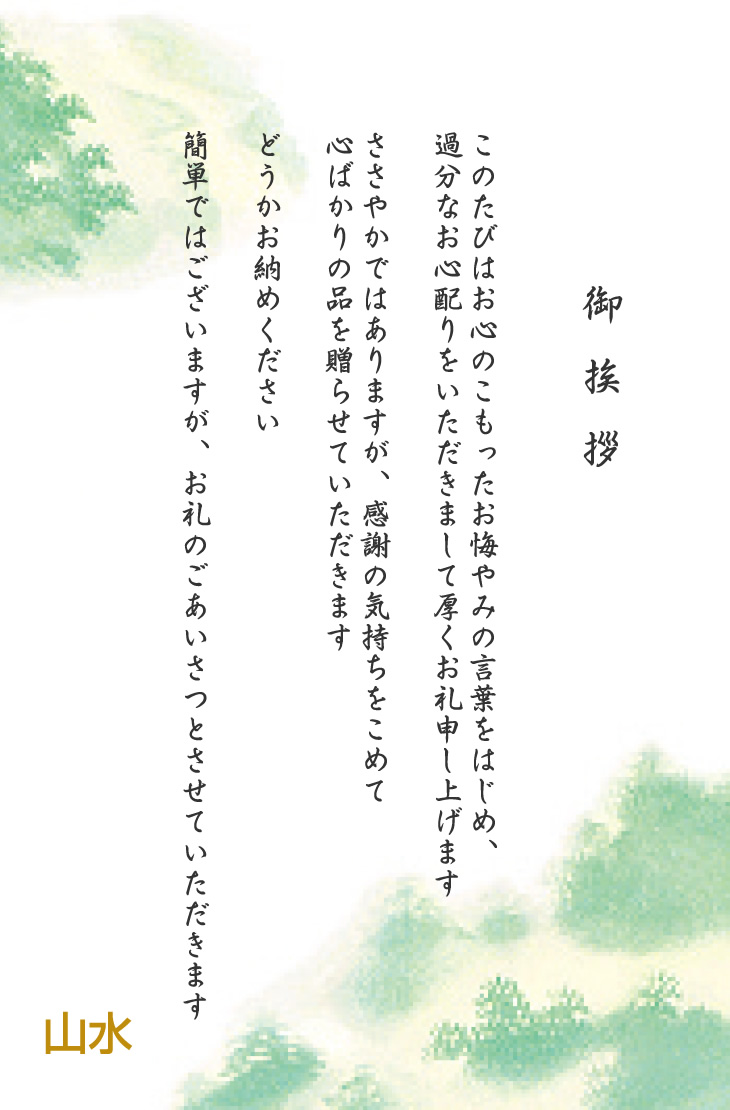 御挨拶
このたびはお心のこもったお悔やみの言葉をはじめ、
過分なお心配りをいただきまして厚くお礼申し上げます
ささやかではありますが、感謝の気持ちをこめて
心ばかりの品を贈らせていただきます
どうかお納めください
簡単ではございますが、お礼のごあいさつとさせていただきます
山水